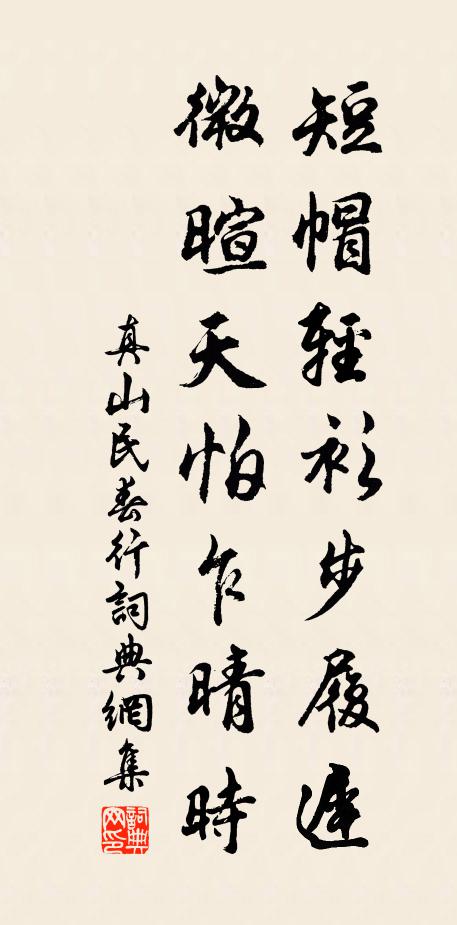 短帽輕衫步履遲
微暄天怕乍晴時
真山民春行詞典網集
詞典網印